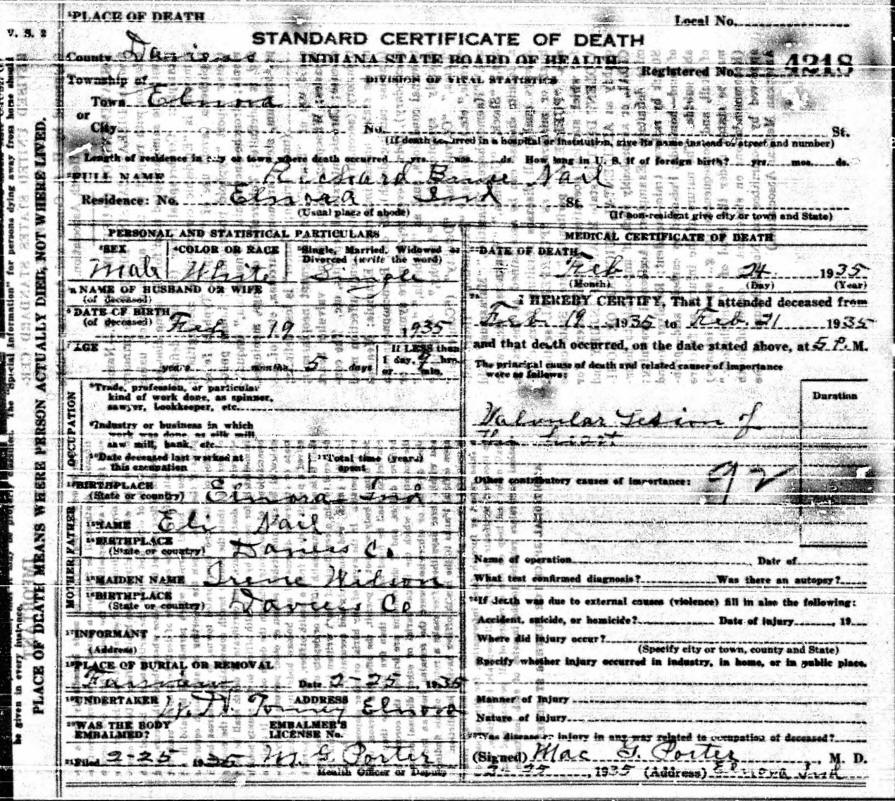 V. S. 2
PLACE OF DEATH MEANS WHERE PERSON ACTUALLY DIED, NOT WHERE LIVED.
be given in every instance.
PLACE OF DEATH
Local No.
STANDARD CERTIFICATE OF DEATH
County Daviess INDIANA STATE BOARD OF HEALTH Registered No. 4218
Township of DIVISION OF VITAL STATISTICS
Town Elnora
or
City No. St.
(If death occurred in a hospital or institution, give its name instead of street and number)
Length of residence in city or town where death occurred yrs. mos. ds. How long in U. S. if of foreign birth? yrs. mos. ds.
FULL NAME Richard Nail
Residence: No. Elnora Ind St.
(Usual place of abode) (If non-resident give city or town and State)
PERSONAL AND STATISTICAL PARTICULARS
SEX COLOR OR RACE Single, Married, Widowed or
Divorced (write the word)
Male White Single
NAME OF HUSBAND OR WIFE
(of deceased)
DATE OF BIRTH
(of deceased) Feb 19 1935
AGE If LESS than
1 day, hrs.
years months 5 days or min.
OCCUPATION
Trade, profession, or particular
kind of work done, as spinner,
sawyer, bookkeeper, etc.
Industry or business in which
work was done, as silk mill,
saw mill, bank, etc.
Date deceased last worked at
this occupation
Total time (years)
spent
BIRTHPLACE
(State or country) Elnora Ind
FATHER
NAME Eli Nail
BIRTHPLACE
(State or country) Daviess Co.
MOTHER
MAIDEN NAME Irene Wilson
BIRTHPLACE
(State or country) Daviess Co
INFORMANT
(Address)
PLACE OF BURIAL OR REMOVAL
Fairview Date 2-25 1935
UNDERTAKER ADDRESS
Elnora
WAS THE BODY
EMBALMED?
EMBALMER'S
LICENSE No.
Filed 2-25 1935 M. G. Porter
Health Officer or Deputy
MEDICAL CERTIFICATE OF DEATH
DATE OF DEATH
Feb 24 1935
(Month) (Day) (Year)
I HEREBY CERTIFY, That I attended deceased from
Feb. 19 1935 to Feb. 21 1935
and that death occurred, on the date stated above, at 5 P. M.
The principal cause of death and related causes of importance
were as follows:
Duration
Valvular Lesion of
the heart
Other contributory causes of importance: 92
Name of operation Date of
What test confirmed diagnosis? Was there an autopsy?
If death was due to external causes (violence) fill in also the following:
Accident, suicide, or homicide? Date of injury , 19
Where did injury occur?
(Specify city or town, county and State)
Specify whether injury occurred in industry, in home, or in public place.
Manner of Injury
Nature of Injury
Was disease or injury in any way related to occupation of deceased?
(Signed) Mac G. Porter, M. D.
2-25, 1935 (Address) Elnora Ind